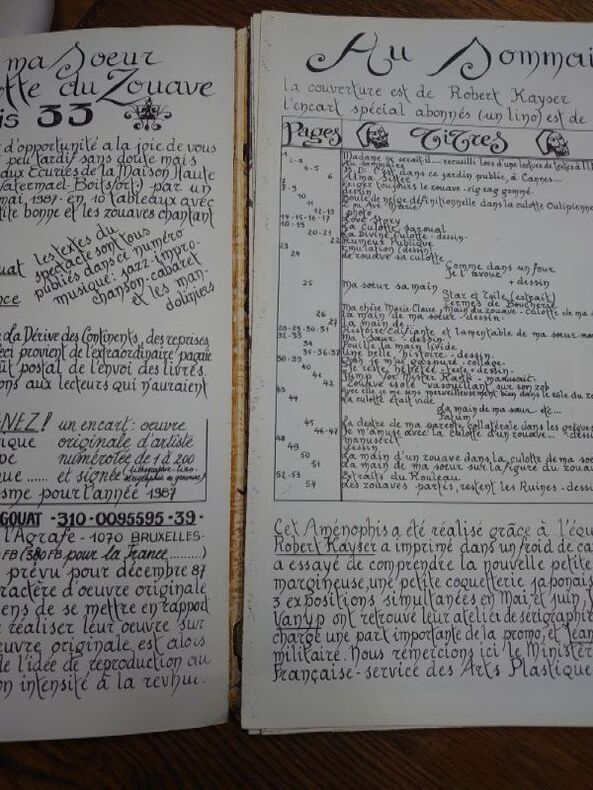 ma Soeur
otte du Zouave
is 33
d'opportunité a la joie de vous
peu tardif sans doute mais
aux Ecuries de la Maison Haute
Watermael-Boitsfort) par un
mai 1987 - en 10 tableaux avec
tite bonne et les zouaves chantant
les textes du
spectacle sont tous
publiés dans ce numéro
musique: jazz-impro-
chanson-cabaret
et les man-
doliniers
uat
nce
la Dérive des Continents, des reprises
eci provient de l'extraordinaire pagaie
ût postal de l'envoi des livres.
ons aux lecteurs qui n'auraient
NEZ! un encart: oeuvre
ique originale d'artiste
pe numérotée de 1 à 200
ue ...... et signée (lithographie-lino-
sérigraphie ou gravure)
sme pour l'année 1987
GOUAT -310-0095595-39-
l'Agrafe - 1070 BRUXELLES-
FB (380FB pour la France.........)
prévu pour décembre 87
ractère d'oeuvre originale
ens de se mettre en rapport
réaliser leur oeuvre sur
uvre originale est alors
le l'idée de reproduction au
on intensité à la revhue.
Au Sommai
la couverture est de Robert Kayser
l'encart spécial abonnés (un lino) est de
Pages TiTRes
Madame ne serait-il... recueilli lors d'une lecture de textes à l'H
du sommaire
4-5 M.D. C'est dans ce jardin public, à Cannes...
6 Alma Sister
exigez toujours le zouave-zigzag gommé
8-9 dessin
10 Boule de neige définitionnelle dans la culotte Oulipienne
11 - mi Ave Marie
12-13 photo
14-15-16-17 Love Story
18-19 La Culotte saroual
20-21 La Divine Culotte - dessin-
22 Rumeur Publique
23 Emulation (dessin)
24 de zouave sa culotte
Comme dans un four
Je l'avoue
25 ma soeur sa main + dessin
Star et Toile (extrait)
Termes de Boucherie
26 Ma chère Marie-Claire, Main du zouave - culotte de ma s
27 la main de ma soeur - dessin-
la main de...
28-29-30-31 Histoire édifiante et lamentable de ma soeur-mou
32-33 ma soeur - dessin-
34 Fouille la main livide
35-36-37 Une belle histoire - dessin-
38-39
40 Je reste hébétée - texte + dessin-
41
42 Zouave esolé vasouillant sur son zob
43 Avec elle je me sens merveilleusement bien dans le rôle du ré
44 La culotte était vide
La main de ma soeur etc...
Fatum!
45 La dextre de ma parente collatérale dans les grègues
46-47 Je m'amuse avec la culotte d'un zouave... - dessi
48 manuscrit
49 dessin
50 La main d'un zouave dans la culotte de ma soe
51 La main de ma soeur sur la figure du zouave
52-53 Extraits du Rouleau
54 Les zouaves partis, restent les Ruines - dessi
Cet Aménophis a été réalisé grâce à l'équ
Robert Kayser a imprimé dans un froid de ca
a essayé de comprendre la nouvelle petite
margineuse, une petite coquetterie japonais
3 expositions simultanées en Mai et juin,
Vanyp ont retrouvé leur atelier de sérigraphie
chargé une part importante de la promo, et Jean
militaire. Nous remercions ici le Ministère
Française - service des Arts Plastique